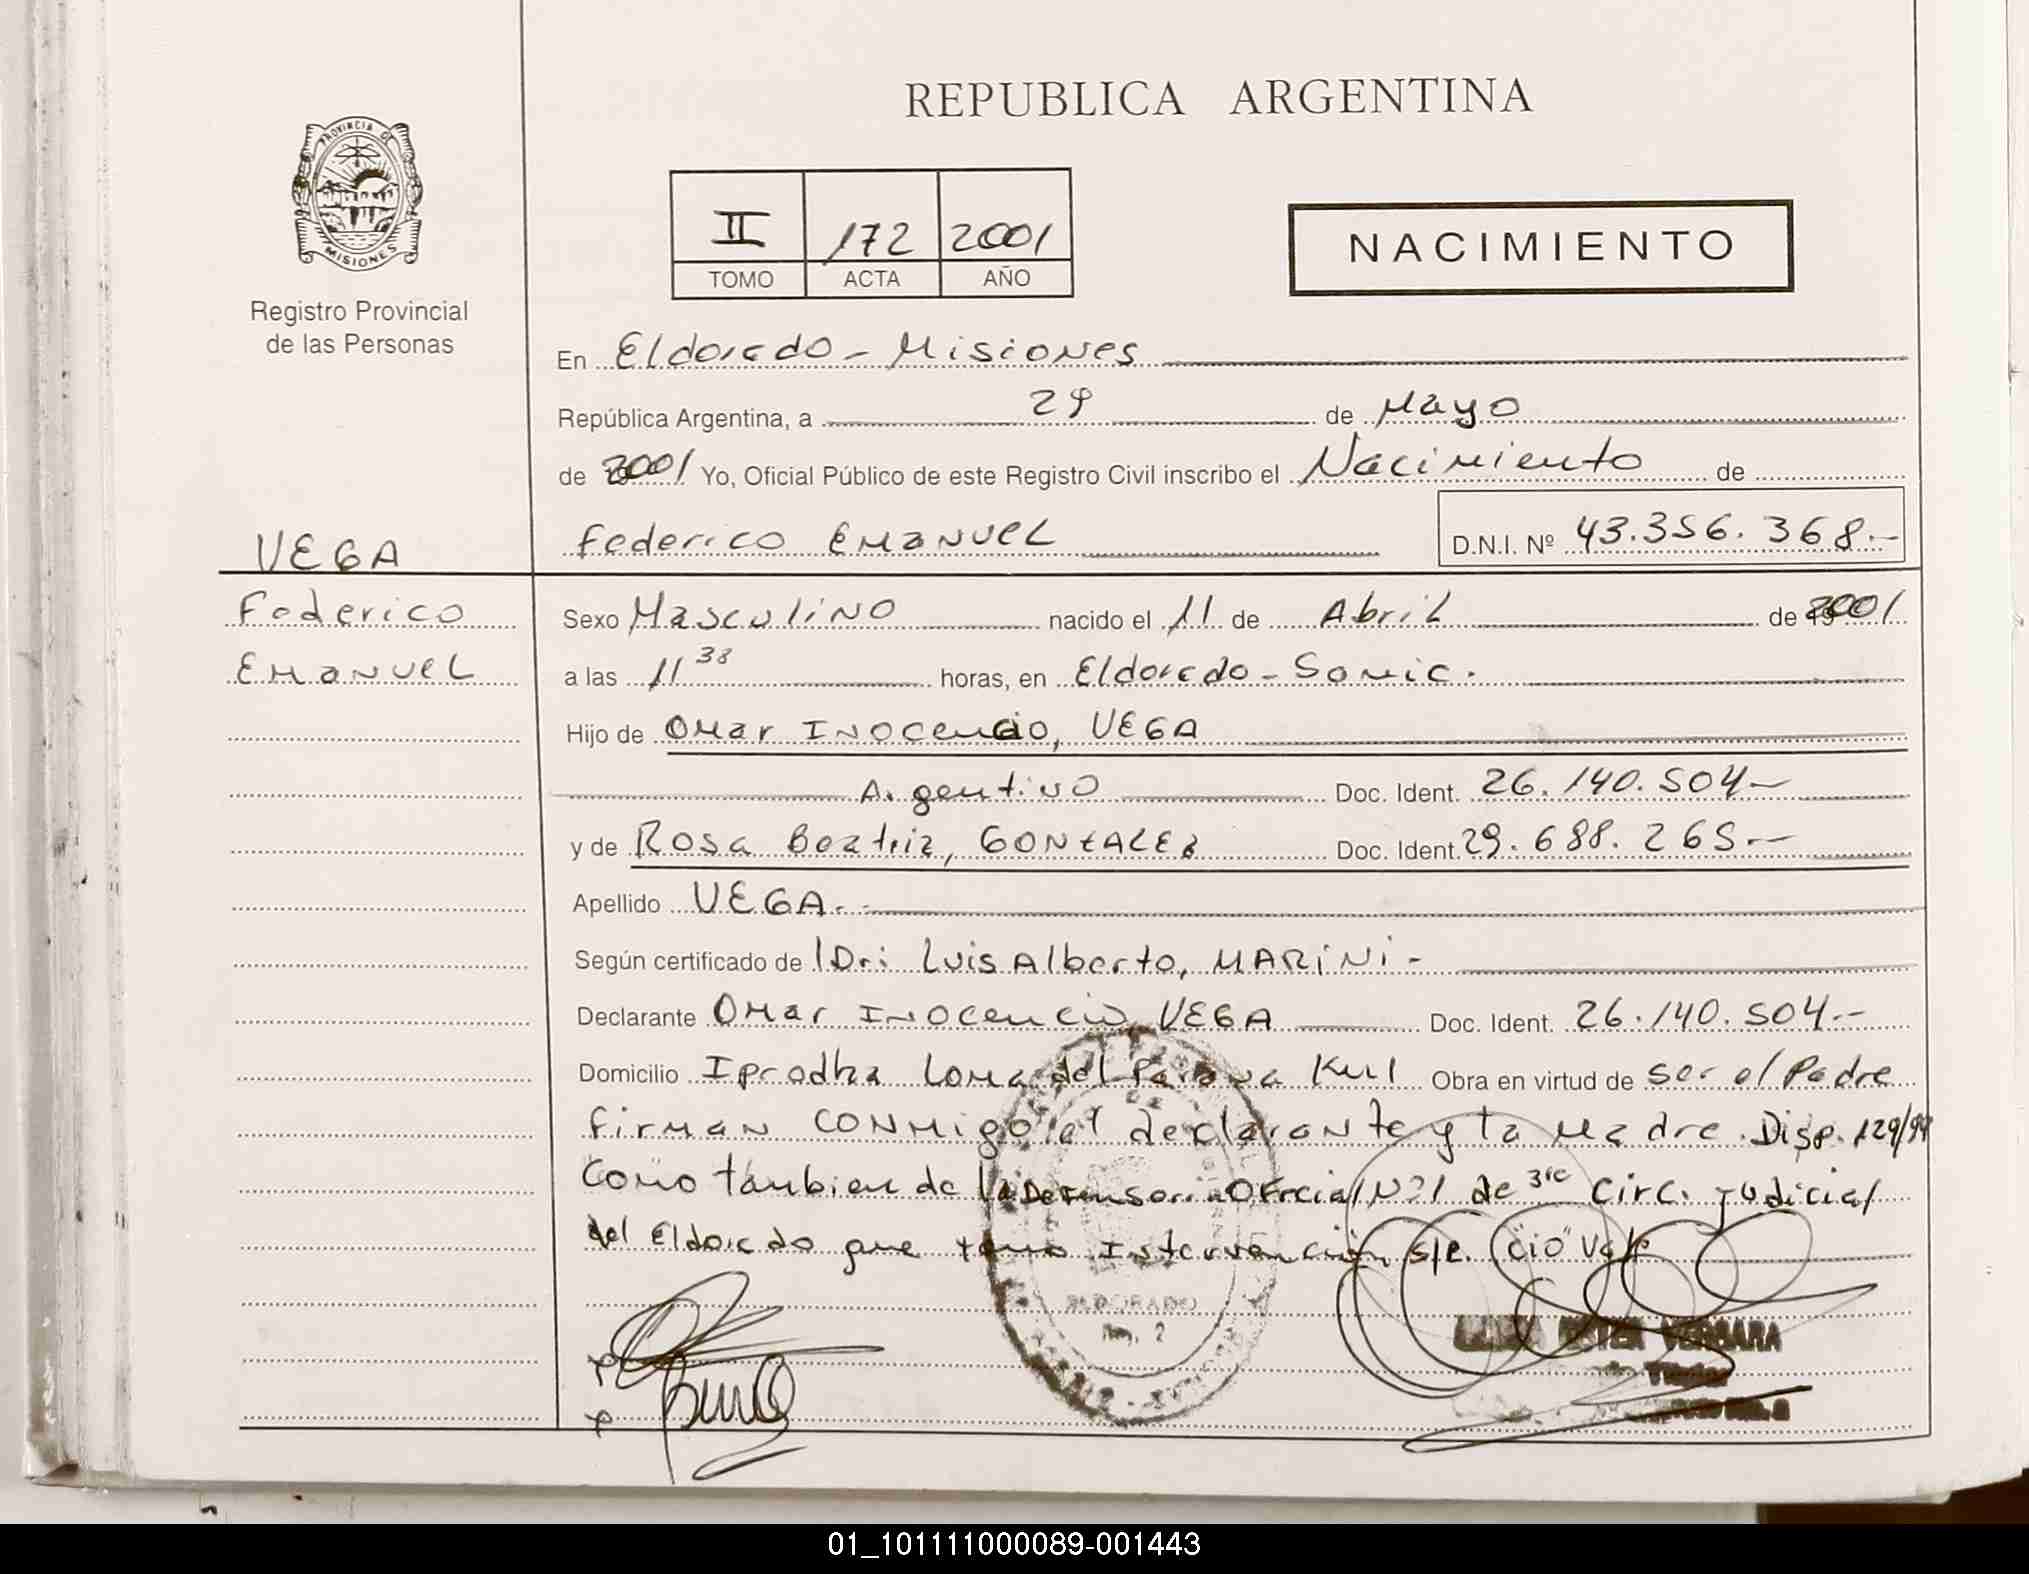 REPUBLICA ARGENTINA
PROVINCIA DE
MISIONES
Registro Provincial
de las Personas
II 172 2001
TOMO ACTA AÑO
NACIMIENTO
En Eldorado - Misiones
República Argentina, a 29 de Mayo
de 2001 Yo, Oficial Público de este Registro Civil inscribo el Nacimiento de
VEGA
Federico Emanuel D.N.I. Nº 43.356.368.-
Federico
Emanuel
Sexo Masculino nacido el 11 de Abril de 2001
a las 11 38 horas, en Eldorado - Samic.
Hijo de Omar Inocencio, VEGA
Argentino Doc. Ident. 26.140.504-
y de Rosa Beatriz, GONZALEZ Doc. Ident. 29.688.265.-
Apellido VEGA.-
Según certificado de Dr: Luis Alberto, MARINI -
Declarante Omar Inocencio, VEGA Doc. Ident. 26.140.504.-
Domicilio Iprodha Loma del Parana Obra en virtud de ser el Padre
Firman conmigo el declarante y la Madre. Disp. 129/
Como tambien de la Defensoria Oficial Nº1 de 3ra Circ. Judicial
del Eldorado que tomo Intervención s/r. "cio" Vale
ELDORADO
ESTER VERGARA
01_101111000089-001443